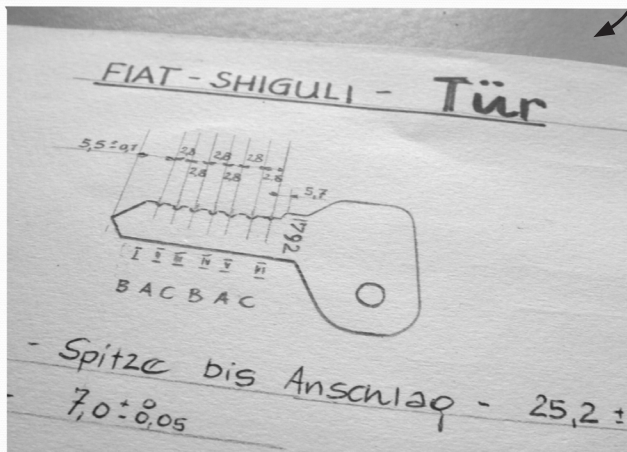 FIAT - SHIGULI - Tür
5,5 ± 0,1 2,8 2,8 2,8
2,8 2,8 2,8
5,7
1792
I II III IV V VI
B A C B A C
- Spitze bis Anschlag - 25,2 ±
- 7,0 ± 0 0,05